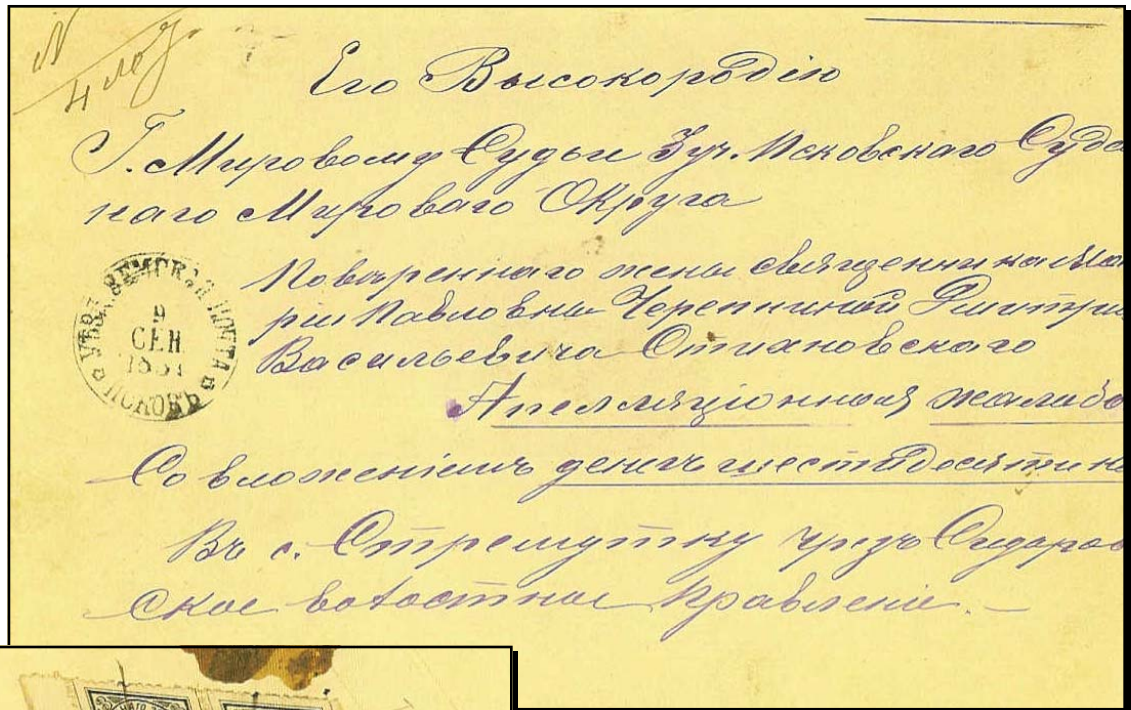 N
4 лот.
Его Высокородію
Г. Мировому Судьи 3 уч. Псковскаго Суде
наго Мироваго Округа
Повѣреннаго жены священника Ма
ріи Павловны Черепниной Дмитрі
Васильевича
Апелляціонная жалоба
Со вложеніемъ денегъ шестидесяти к
Въ с. Стремутку чрезъ Сидоров
ское волостное Правленіе.
УѢЗД. ЗЕМСКАЯ ПОЧТА
9
СЕН
ПСКОВЪ